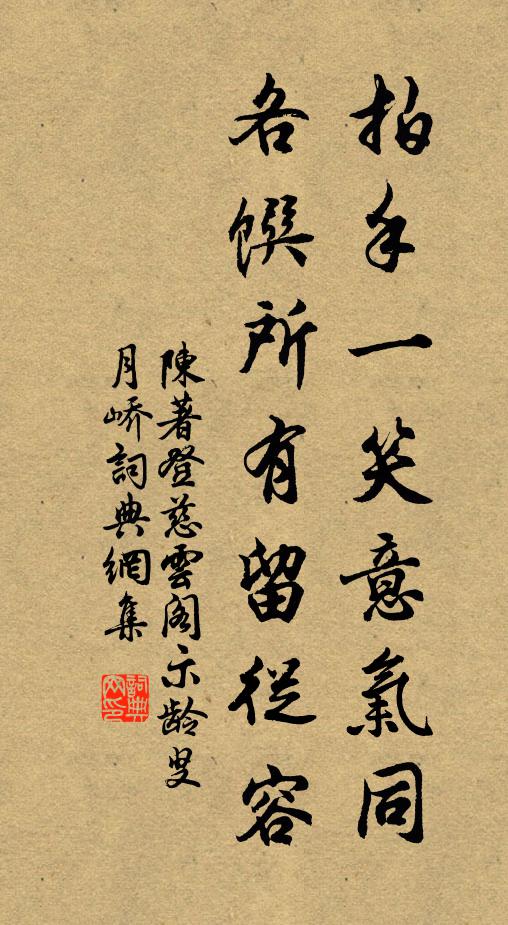 拍手一笑意氣同
各饌所有留從容
陳著登慈雲閣示龄叟
月嶠詞典網集
詞典网印